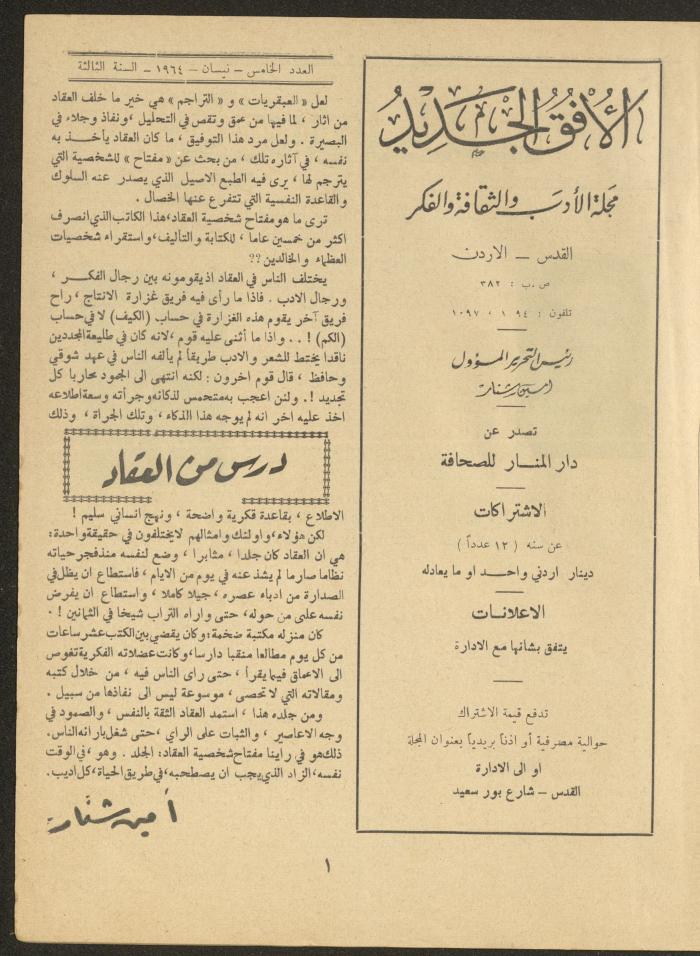 الأفق الجديد
مجلة الأدب والثقافة والفكر
القدس - الاردن
ص.ب : ٣٨٢
تلفون : ٩٤ ١٠ ١٠٩٧
رئيس التحرير المسؤول
امين شنار
تصدر عن
دار المنار للصحافة
الاشتراكات
عن سنه ( ١٢ عدداً )
دينار اردني واحد او ما يعادله
الاعلانات
يتفق بشانها مع الادارة
تدفع قيمة الاشتراك
حوالية مصرفية أو اذناً بريدياً بعنوان المجلة
او الى الادارة
القدس - شارع بور سعيد
العدد الخامس - نيسان - ١٩٦٤ - السنة الثالثة
لعل « العبقريات » و « التراجم » هي خير ما خلف العقاد
من اثار ، لما فيها من عمق وتقص في التحليل ، ونفاذ وجلاء في
البصيرة . ولعل مرد هذا التوفيق ، ما كان العقاد يأخذ به
نفسه ، في آثاره تلك ، من بحث عن « مفتاح » للشخصية التي
يترجم لها ، يرى فيه الطبع الاصيل الذي يصدر عنه السلوك
والقاعدة النفسية التي تتفرع عنها الخصال .
ترى ما هو مفتاح شخصية العقاد،هذا الكاتب الذي انصرف
اكثر من خمسين عاما ، للكتابة والتأليف،واستقراء شخصيات
العظماء والخالدين ??
يختلف الناس في العقاد اذ يقومونه بين رجال الفكر ،
ورجال الادب . فاذا ما رأى فيه فريق غزارة الانتاج ، راح
فريق آخر يقوم هذه الغزارة في حساب (الكيف) لا في حساب
(الكم) ! . . واذا ما أثنى عليه قوم ،لانه كان في طليعة المجددين
ناقدا يختط للشعر والادب طريقاً لم يألفه الناس في عهد شوقي
وحافظ ، قال قوم اخرون : لكنه انتهى الى الجمود محاربا كل
تجديد !. ولئن اعجب به متحمس لذكائه وجرأته وسعة اطلاعه
اخذ عليه اخر انه لم يوجه هذا الذكاء ، وتلك الجراة ، وذلك
درس من العقاد
الاطلاع ، بقاعدة فكرية واضحة ، ونهج انساني سليم !
لكن هؤلاء،واولئك وامثالهم لا يختلفون في حقيقة واحدة:
هي ان العقاد كان جلدا ، مثابرا ، وضع لنفسه منذ فجر حياته
نظاما صارما لم يشذ عنه في يوم من الايام ، فاستطاع ان يظل في
الصدارة من ادباء عصره ، جيلا كاملا ، واستطاع ان يفرض
نفسه على من حوله، حتى واراه التراب شيخا في الثمانين !.
كان منزله مكتبة ضخمة:وكان يقضي بين الكتب عشر ساعات
من كل يوم مطالعا منقبا دارسا،وكانت عضلاته الفكرية تغوص
الى الاعماق فيما يقرأ ، حتى راى الناس فيه ، من خلال كتبه
ومقالاته التي لا تحصى ، موسوعة ليس الى نفاذها من سبيل .
ومن جلده هذا ، استمد العقاد الثقة بالنفس ، والصمود في
وجه الاعاصير ، والثبات على الراي ،حتى شغل بارائه الناس.
ذلك هو في راينا مفتاح شخصية العقاد: الجلد . وهو ،في الوقت
نفسه، الزاد الذي يجب ان يصطحبه،في طريق الحياة،كل اديب.
أمين شنار
١